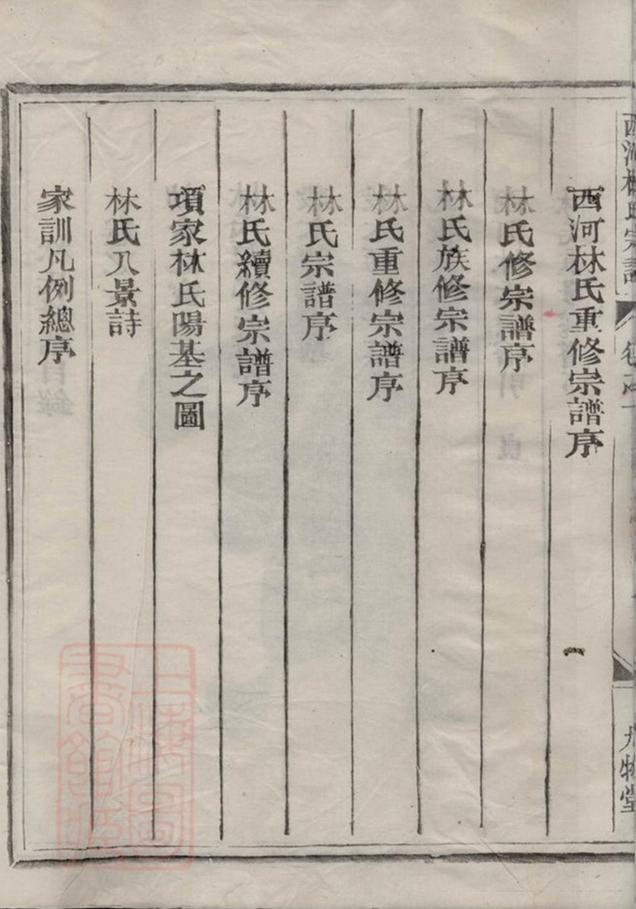 西河林氏宗譜
西河林氏重修宗譜序
林氏修宗譜序
林氏族修宗譜序
林氏重修宗譜序
林氏宗譜序
林氏續修宗譜序
項家林氏陽基之圖
林氏八景詩
家訓凡例總序